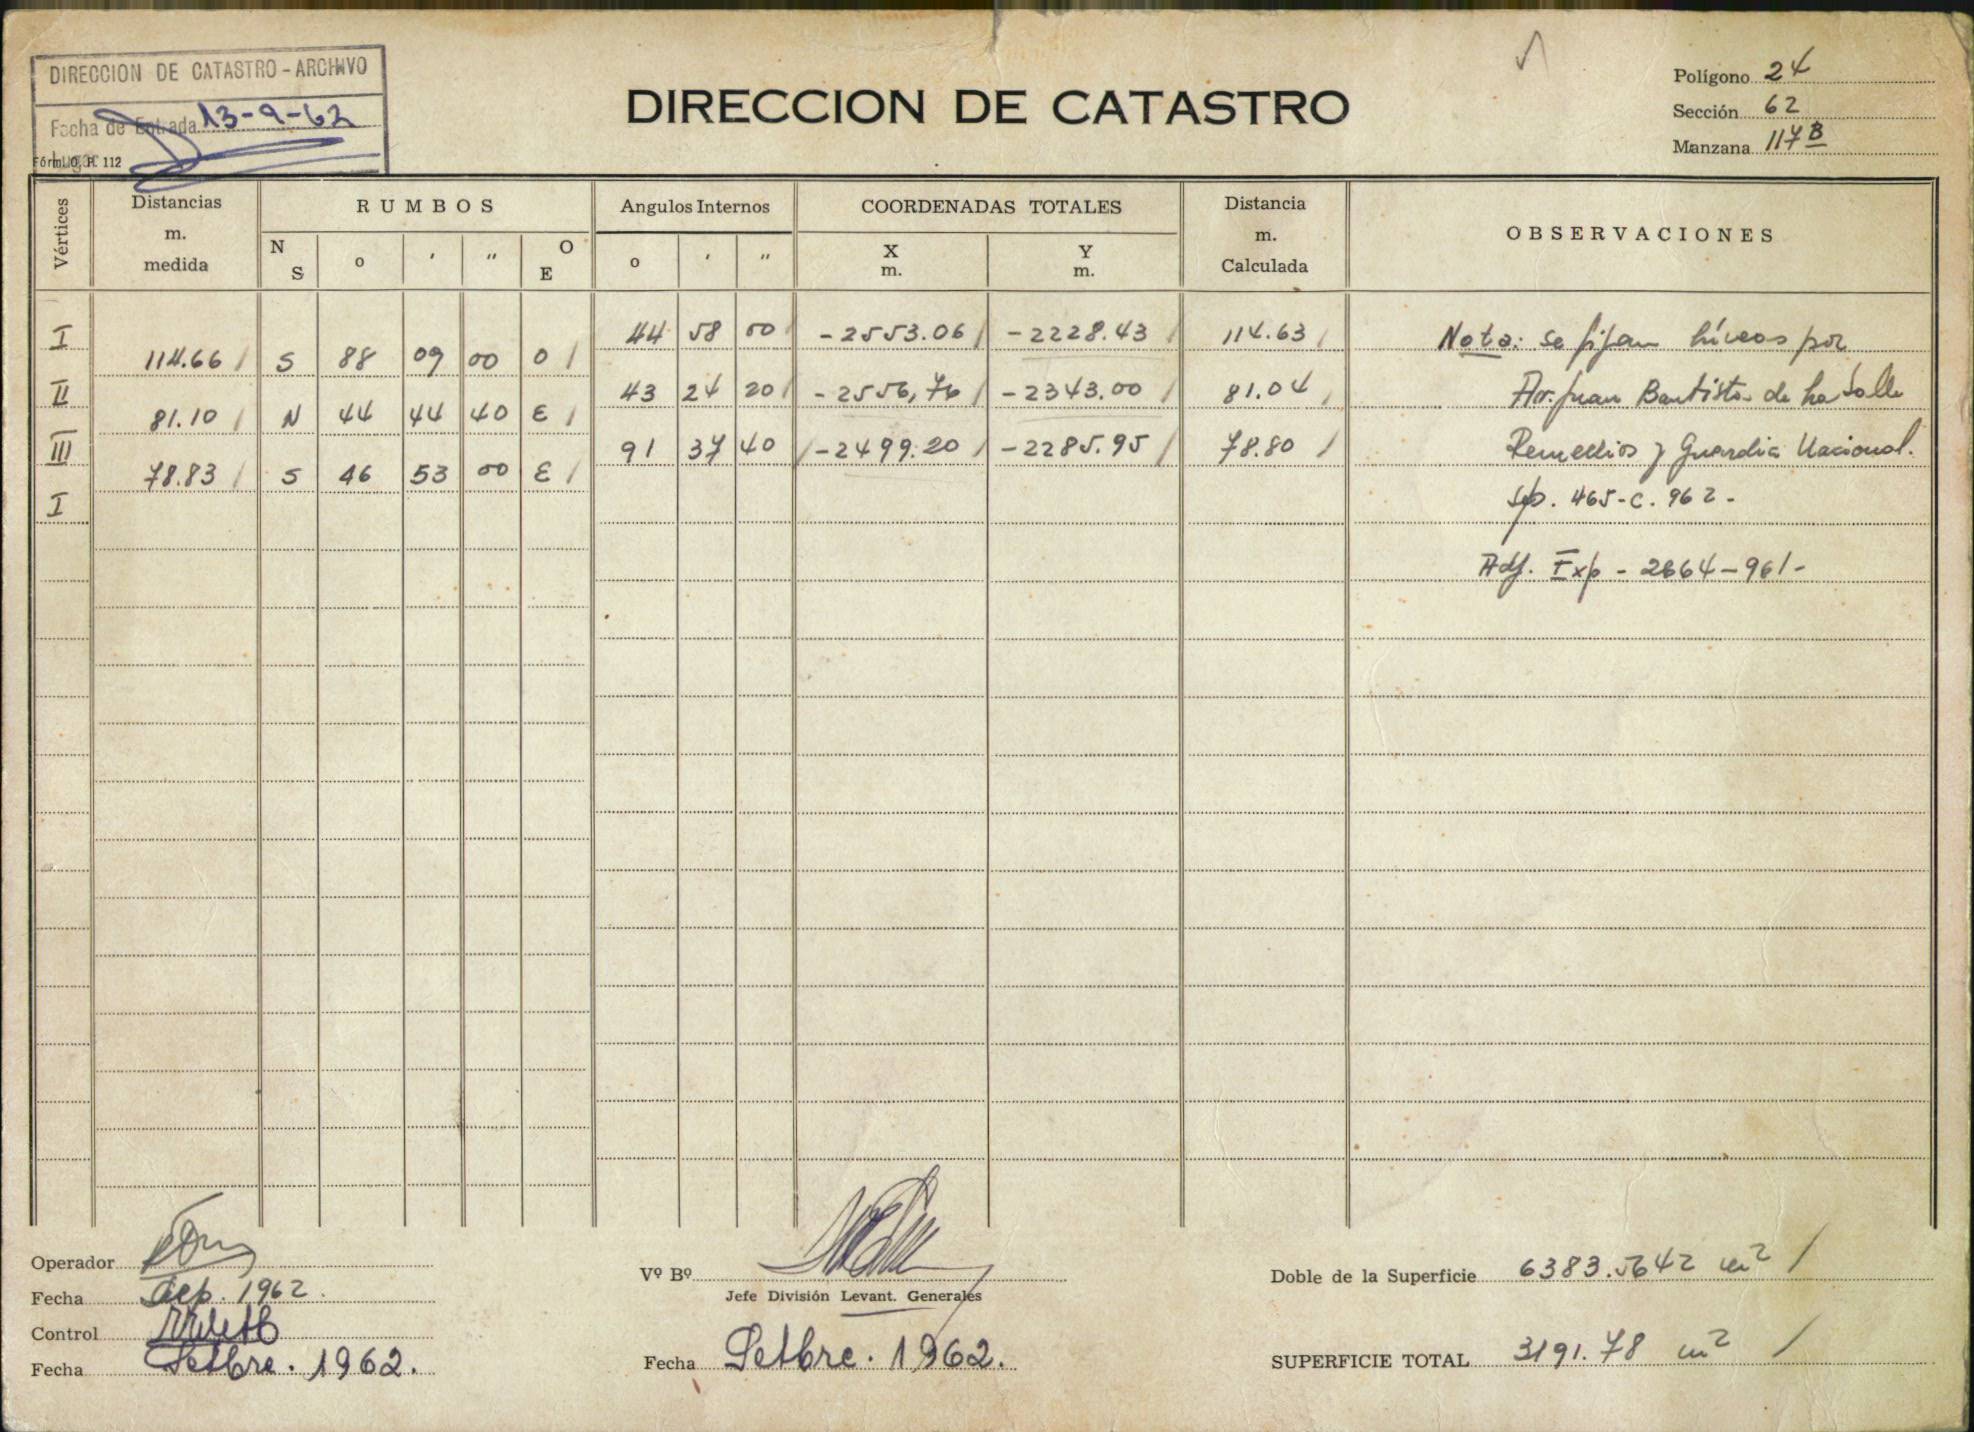 DIRECCION DE CATASTRO - ARCHIVO
Fecha de Entrada 13-9-62
Fórm. O. H. 112
DIRECCION DE CATASTRO
Polígono 24
Sección 62
Manzana 117 B
Vértices
Distancias m. medida
RUMBOS
N S o ' " O E
Angulos Internos
o ' "
COORDENADAS TOTALES
X m. Y m.
Distancia m. Calculada
OBSERVACIONES
I 44 58 00 -2553.06 -2228.43 114.63 Nota: se fijan líneas por
114.66 S 88 09 00 O
II 43 24 20 -2556,76 -2343.00 81.04 Av. Juan Bautista de La Salle
81.10 N 44 44 40 E
III 91 37 40 -2499.20 -2285.95 78.80 Remedios y Guardia Nacional.
78.83 S 46 53 00 E
I 465-C. 962-
Adj. Exp - 2664-961-
Operador
Fecha Sep. 1962.
Control
Fecha Setbre. 1962.
Vº Bº
Jefe División Levant. Generales
Fecha Setbre. 1962.
Doble de la Superficie 6383.5642 m2
SUPERFICIE TOTAL 3191.78 m2